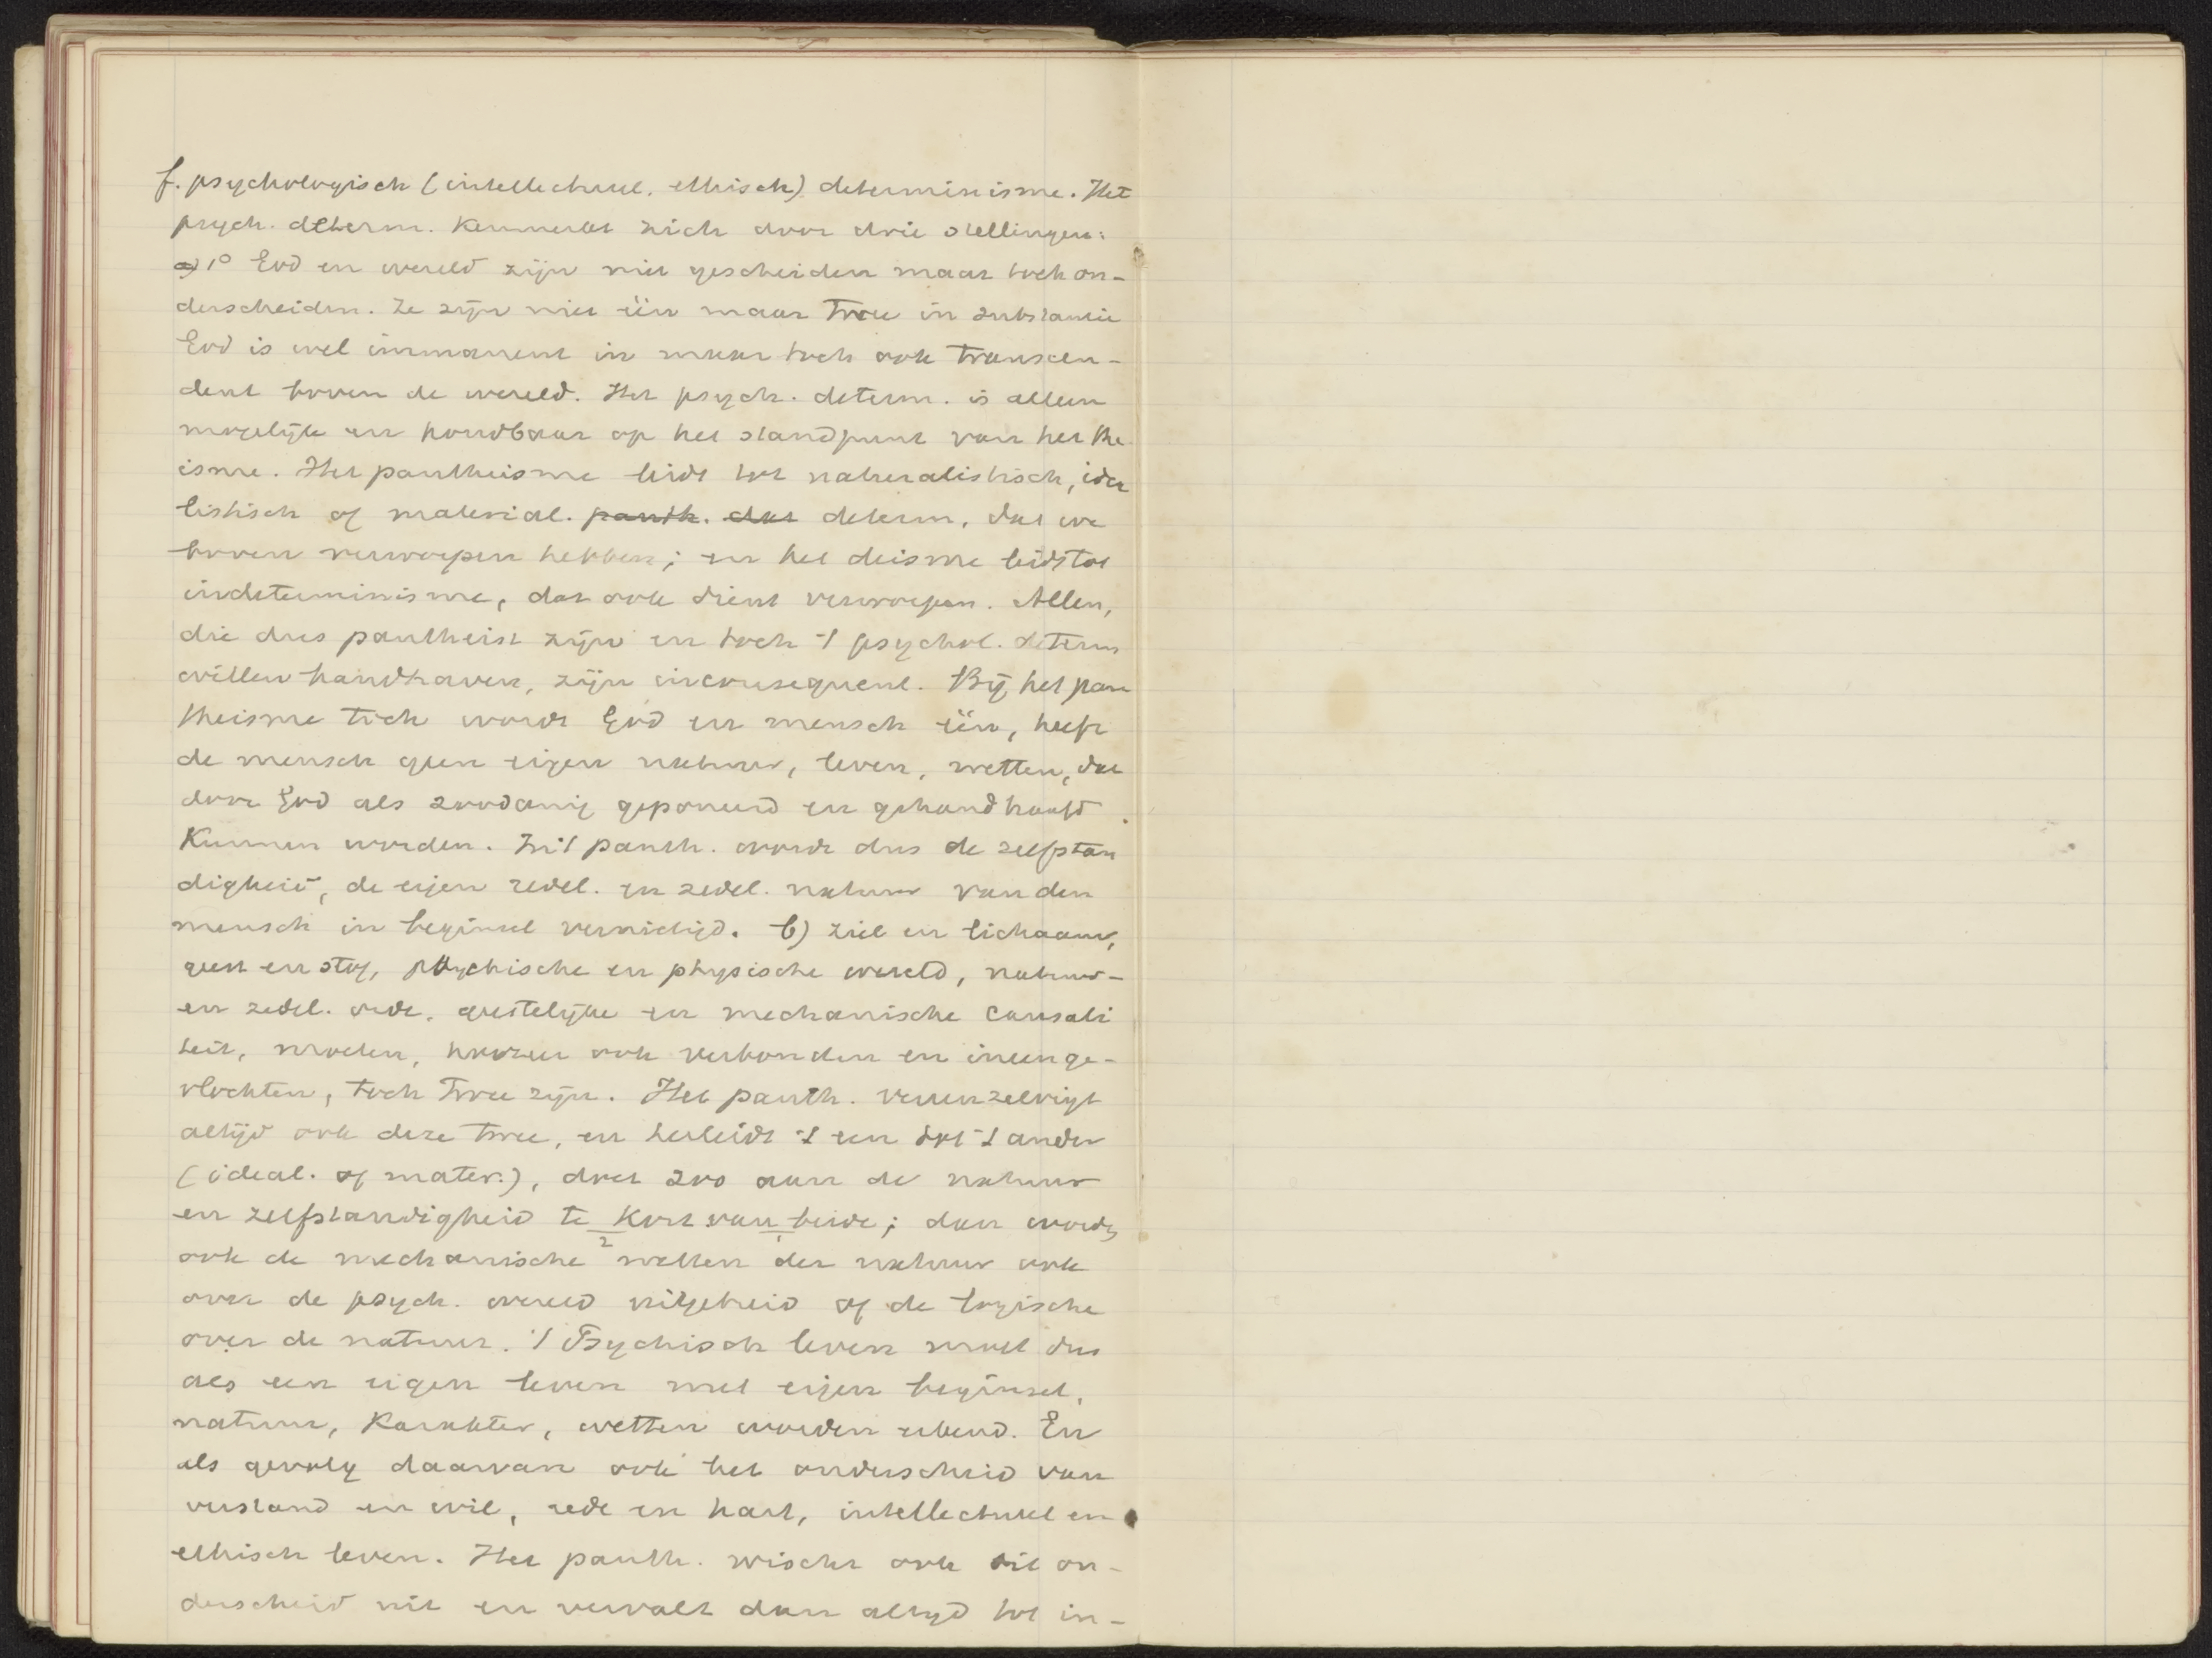 f. psychologisch (intellectueel. ethisch) determinisme. Het
psych. determ. kenmerkt zich door drie stellingen:
a) 1° God en wereld zijn niet gescheiden maar toch on-
derscheiden. Ze zijn niet één maar twee in substantie
God is wel immanent in maar toch ook transcen-
dent boven de wereld. Het psych. determ. is alleen
mogelijk en houdbaar op het standpunt van het the
isme. Het pantheisme leidt tot naturalistisch, idea
listisch of material. panth. dat determ. dat we
boven verworpen hebben; en het deisme leidt tot
indeterminisme, dat ook dient verworpen. Allen,
die dus pantheist zijn en toch 't psychol. determ
willen handhaven, zijn inconsequent. Bij het pan
theisme toch wordt God en mensch één, heeft
de mensch geen eigen natuur, leven, wetten, die
door God als zoodanig geponeerd en gehandhaafd
kunnen worden. In 't panth. wordt dus de zelfstan
digheid, de eigen redel. en zedel. natuur van den
mensch in beginsel vernietigd. b) ziel en lichaam,
geest en stof, psychische en physische wereld, natuur-
en zedel. orde, geestelijke en mechanische causali
teit, moeten, hoezeer ook verbonden en ineenge-
vlochten, toch twee zijn. Het panth. vereenzelvigt
altijd ook deze twee, en herleidt 't een tot 't ander
(ideal. of mater.), doet zoo aan de natuur
en zelfstandigheid te kort van beide; dan worden
2 1
ook de mechanische wetten der natuur ook
over de psych. wereld uitgebreid of de logische
over de natuur. 't Psychisch leven moet dus
als een eigen leven met eigen beginsel,
natuur, karakter, wetten worden erkend. En
als gevolg daarvan ook het onderscheid van
verstand en wil, rede en hart, intellectueel en
ethisch leven. Het panth. wischt ook dit on-
derscheid uit en vervalt dan altijd tot in-